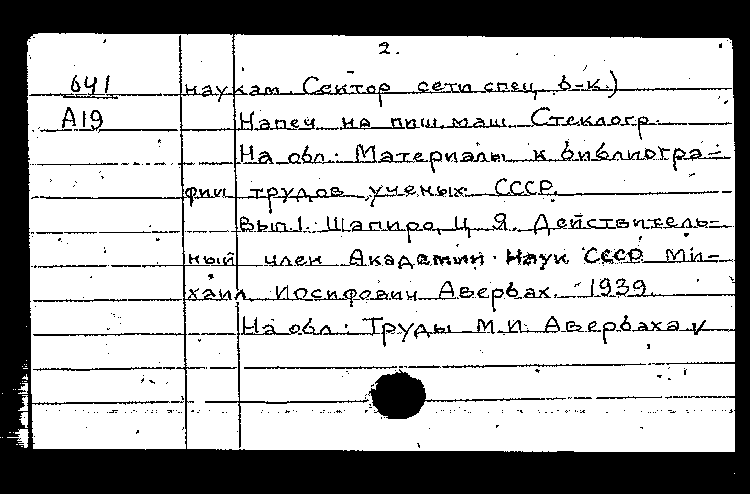 2.
641 наукам. Сектор сети спец. б-к.)
А19 Напеч. на пиш. маш. Стеклогр.
На обл.: Материалы к библиогра-
фии трудов ученых СССР.
Вып. 1. Шапиро, Ц. Я. Действитель-
ный член Академии Наук СССР Ми-
хаил Иосифович Авербах. 1939.
На обл.: Труды М. И. Авербаха